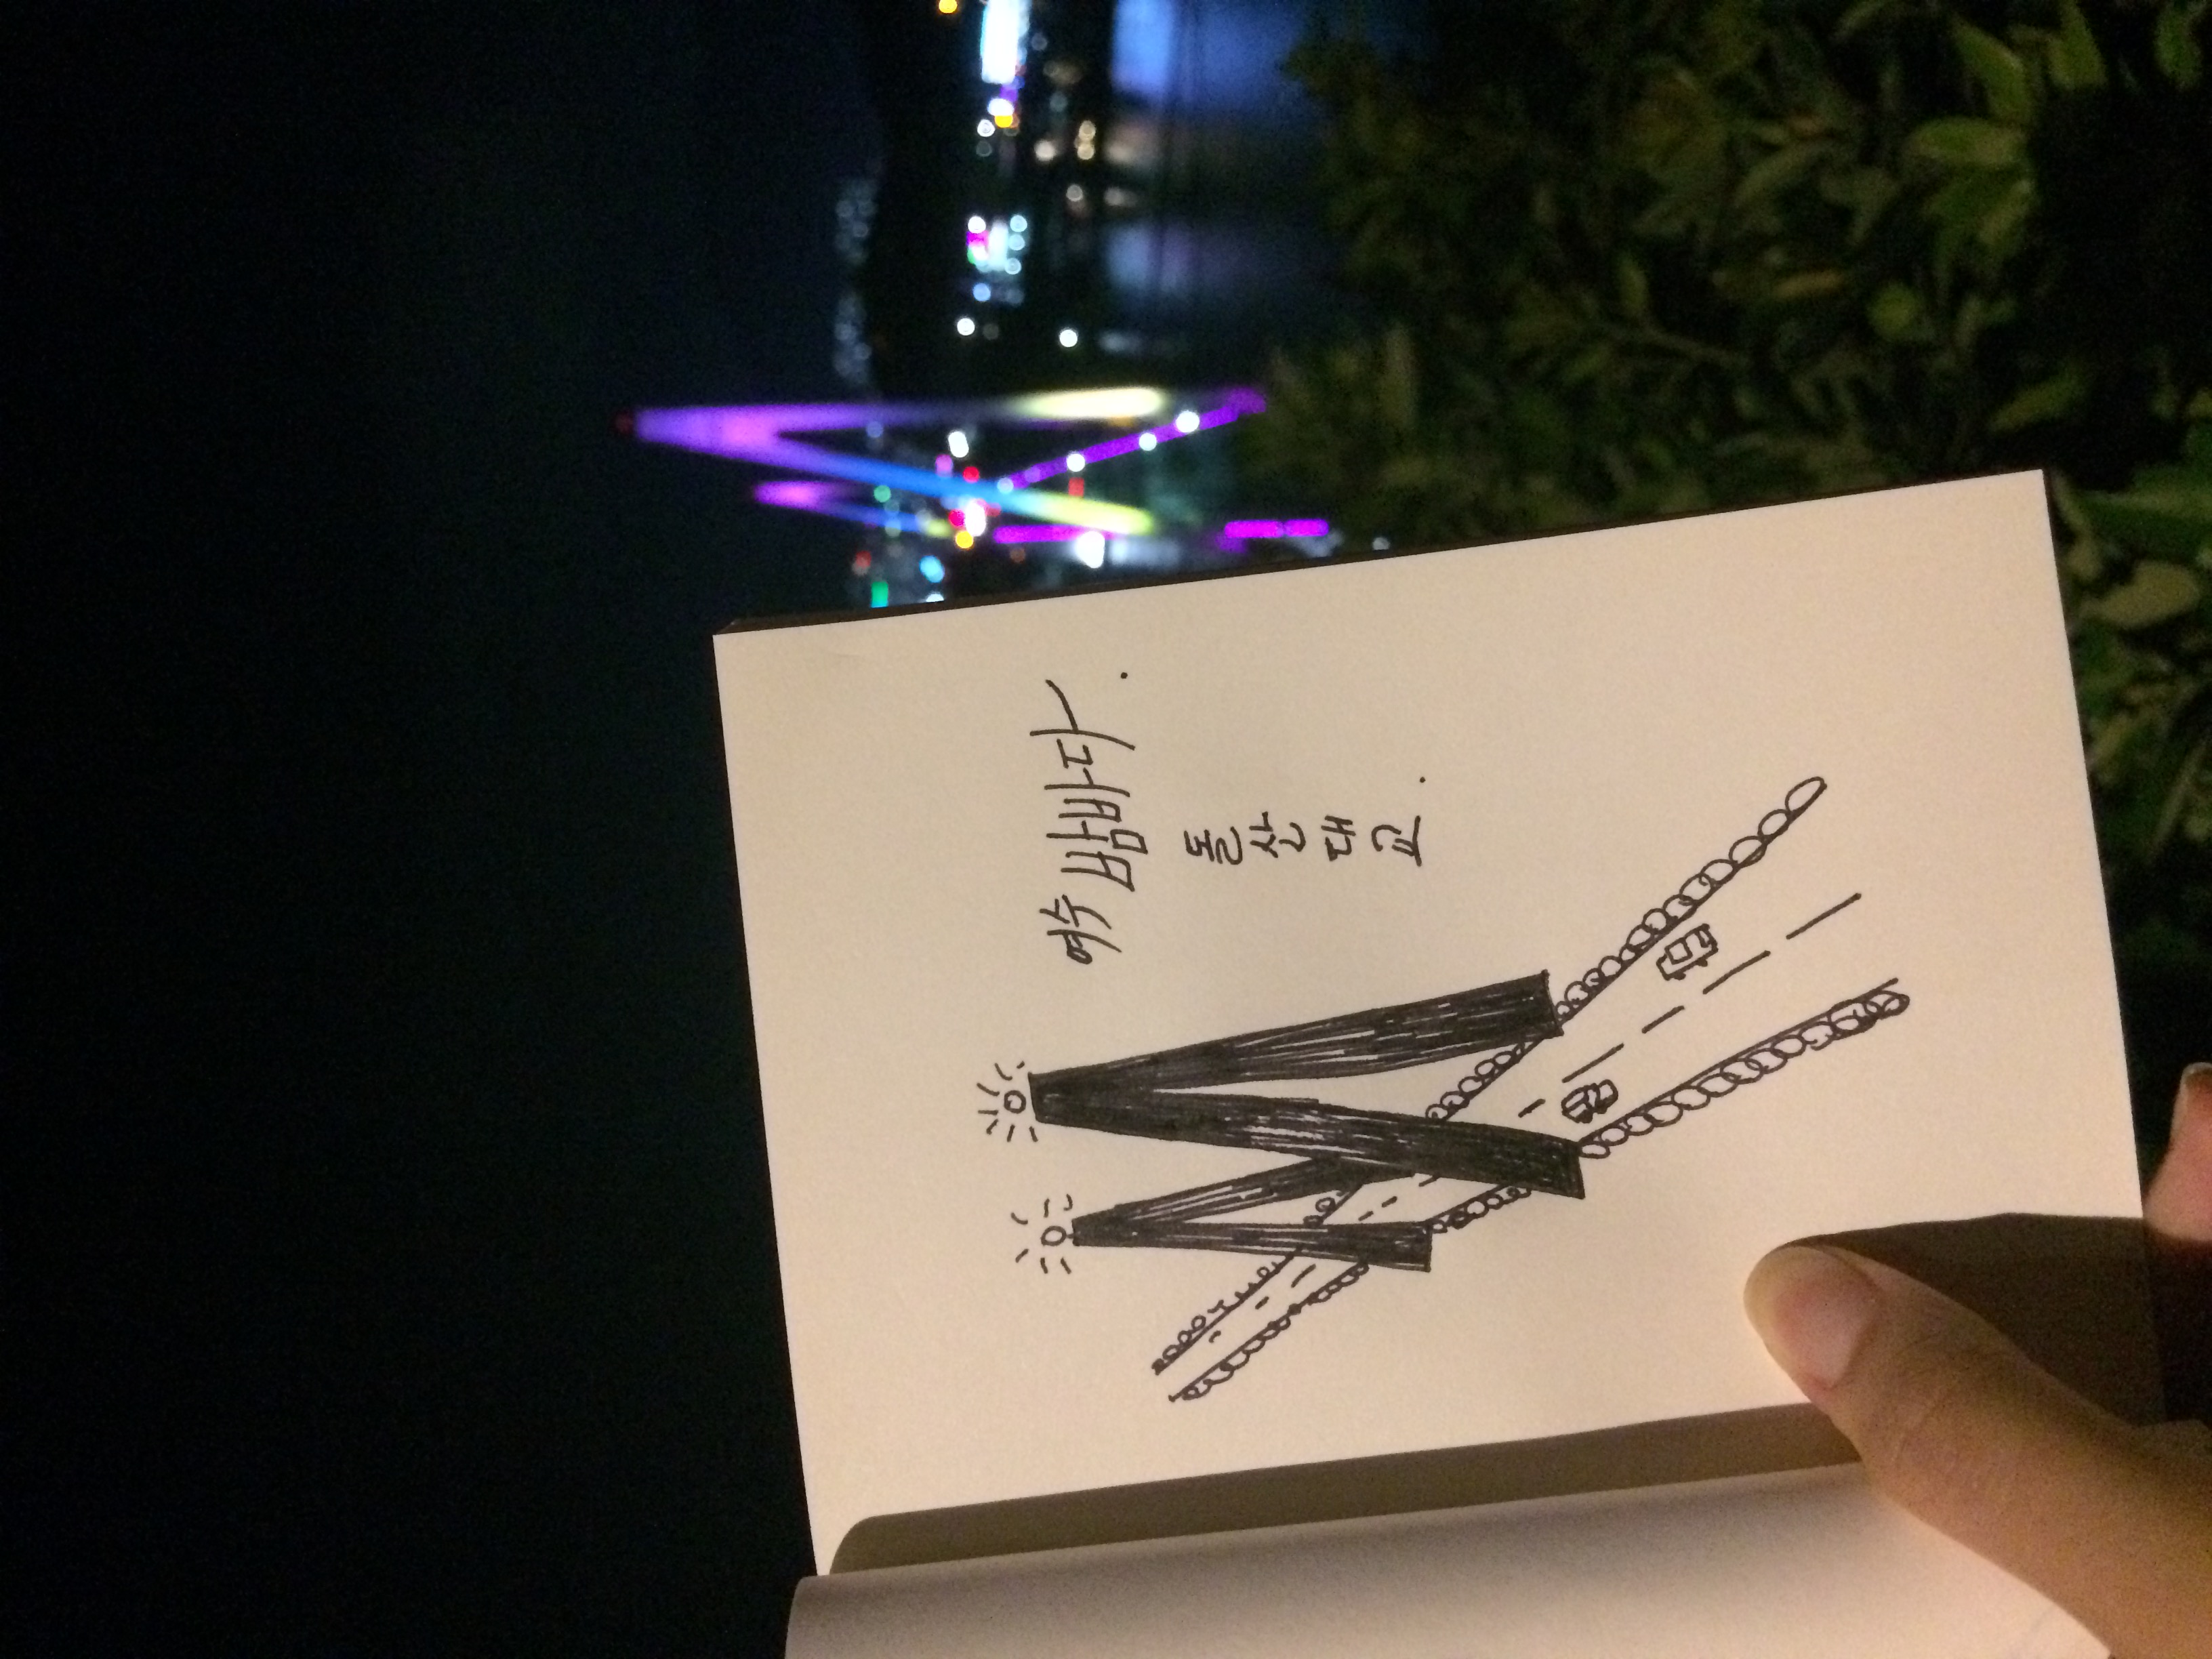 여수 밤바다.
돌산대교.